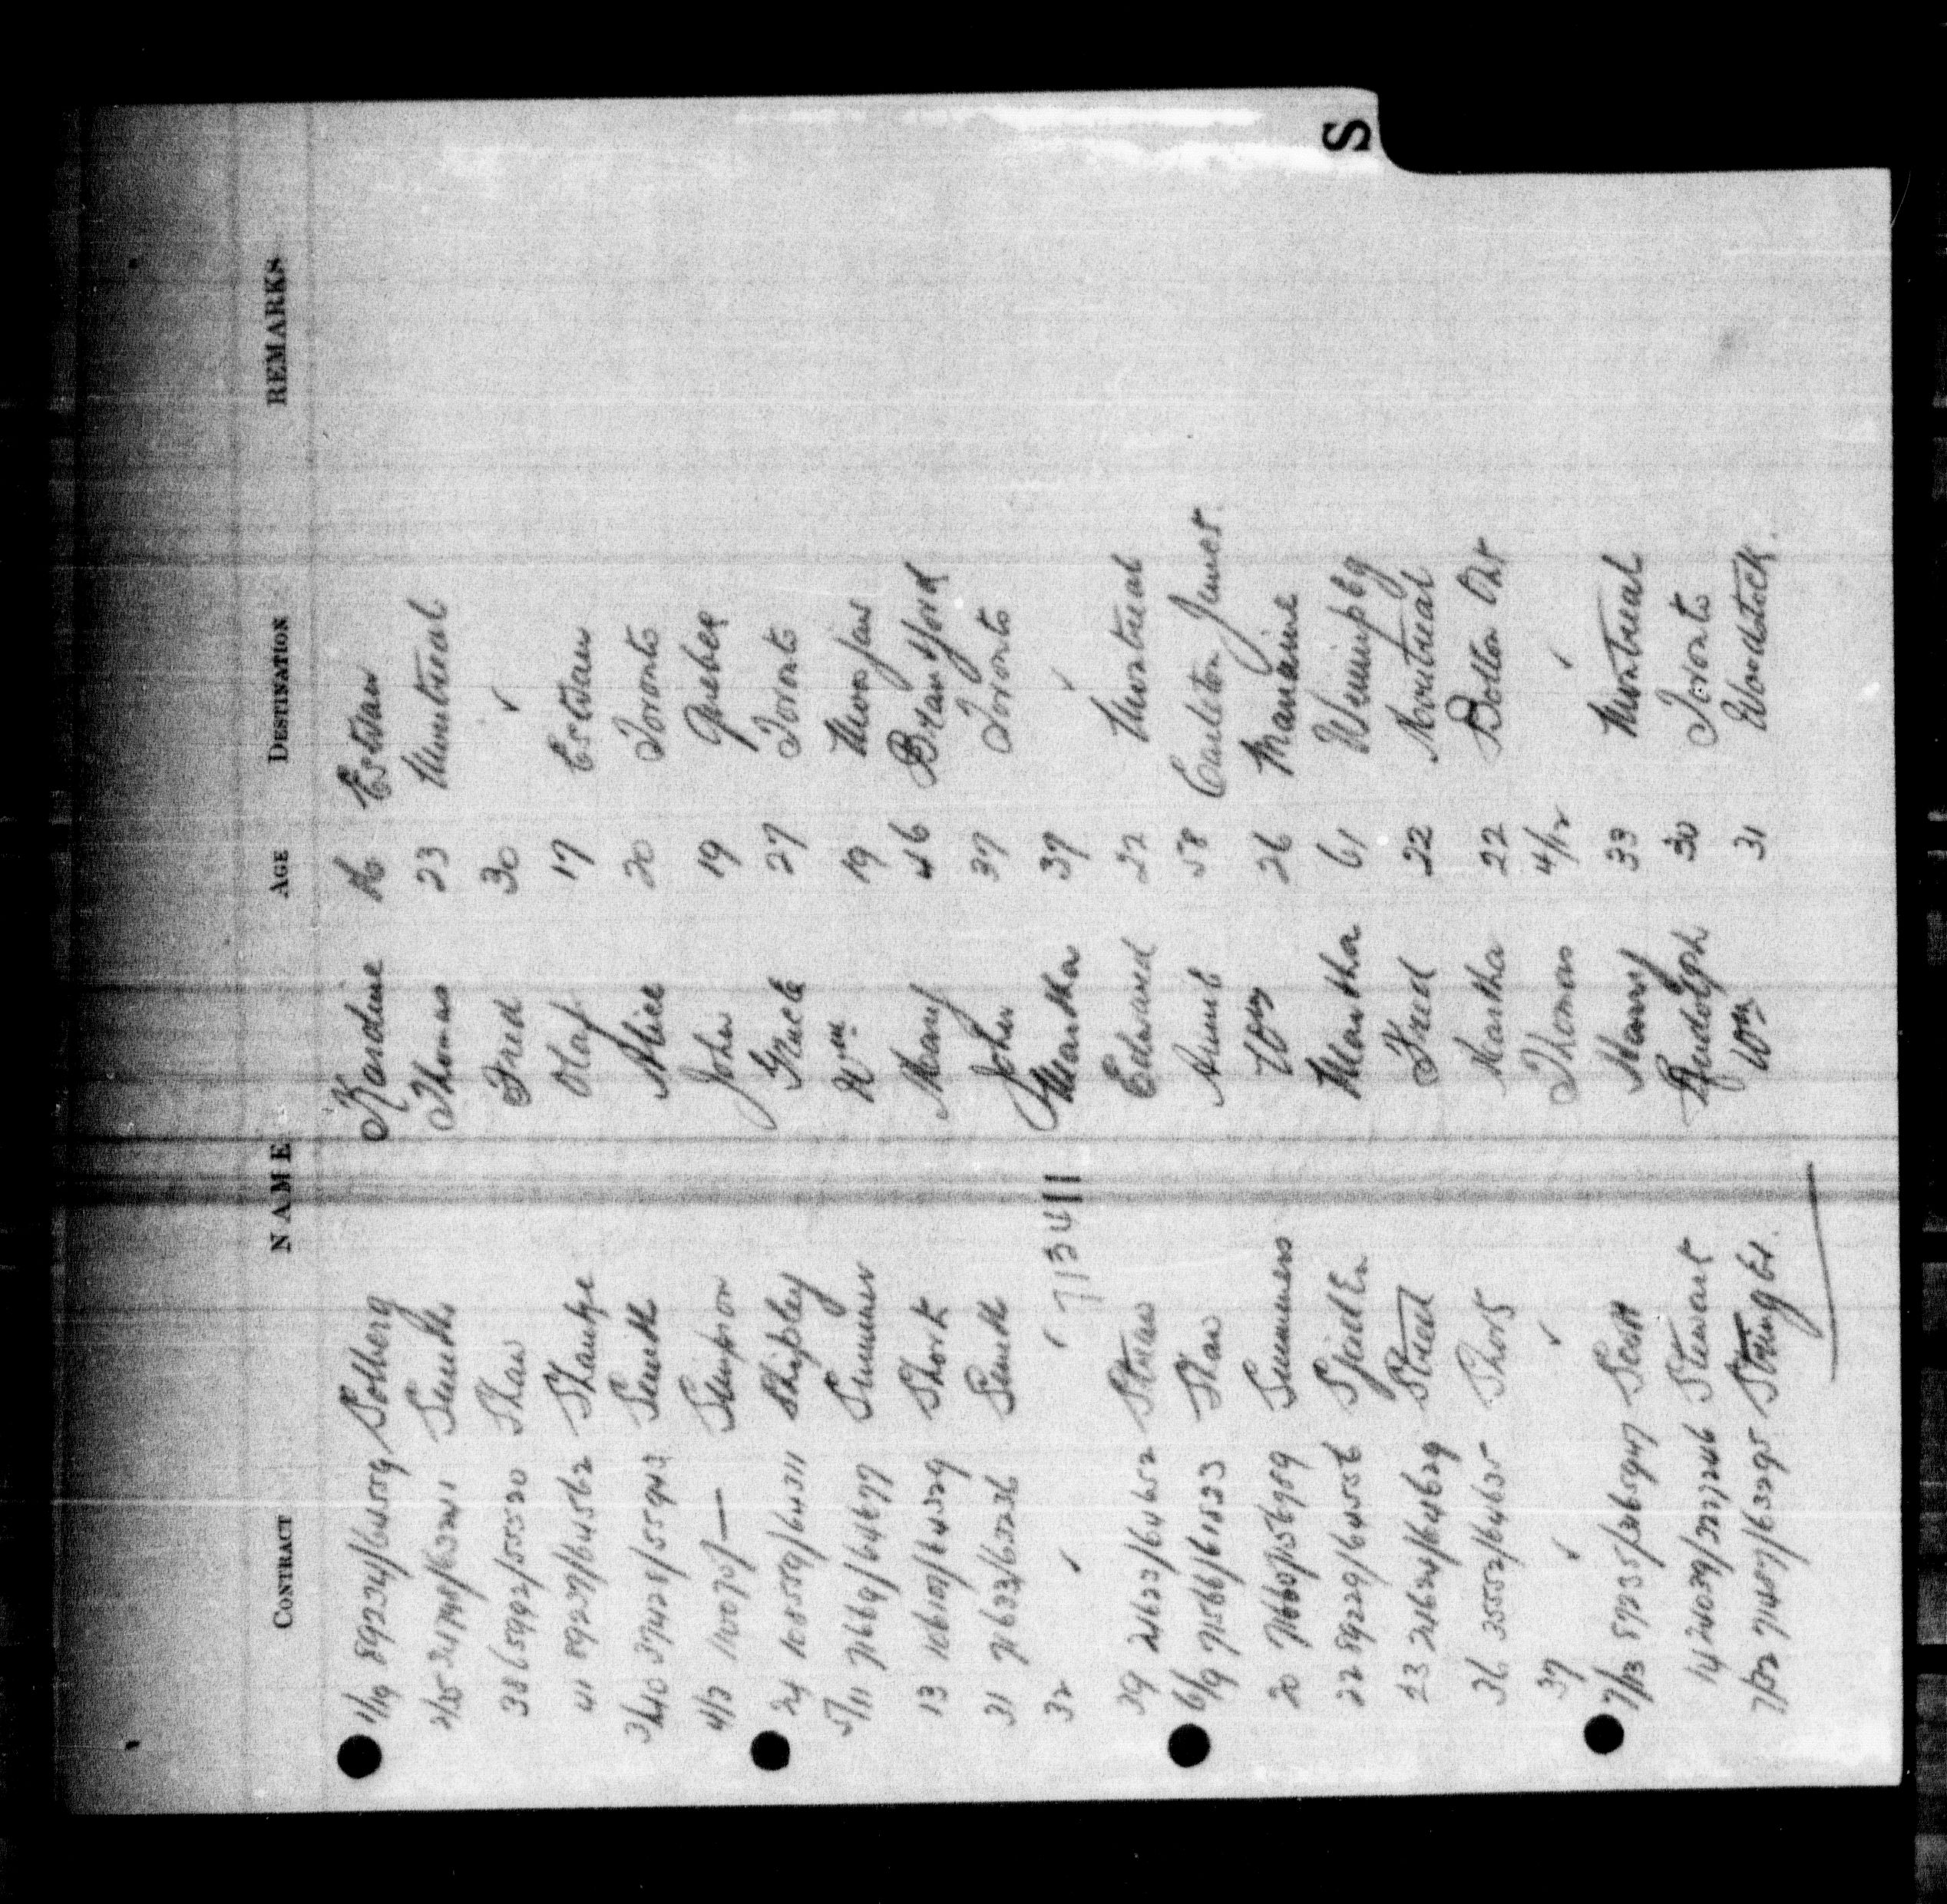 S
CONTRACT NAME AGE DESTINATION REMARKS
1/19 89234/64559 Solberg Kardine 16 Estevan
2/35 Smith Thomas 23 Montreal
38 65992/555520 Shaw Fred 30 ✓
41 89237/64562 Olaf 17 Estevan
3/40 379428/55943 Smith Alice 20 Toronto
4/2 — Simpson John 19 Quebec
24 108559/64311 Shipley Grace 27 Toronto
5/11 71669/64677 Wm 19 Moosejaw
13 106107/64329 Short Mary 46 Brantford
31 71633/65236 Smith John 39 Toronto
32 ✓ ✓ 713411 Martha 39 ✓
39 21623/64652 Straw Edward 22 Montreal
6/9 71566/61533 Shaw 58 Carleton
20 71660/156989 Summers Wm 26
22 89229/64556 Martha 61 Winnipeg
23 21624/64629 Street Fred 22 Montreal
36 35552/64635 Short Martha 22 Bolton Ont
37 ✓ ✓ Thomas 4/12 ✓
7/13 89235/265947 Scott Harry 33 Montreal
14 24039/227246 Stewart Rudolph 30 Toronto
7/32 71487/63295 Wm 31 Woodstock.